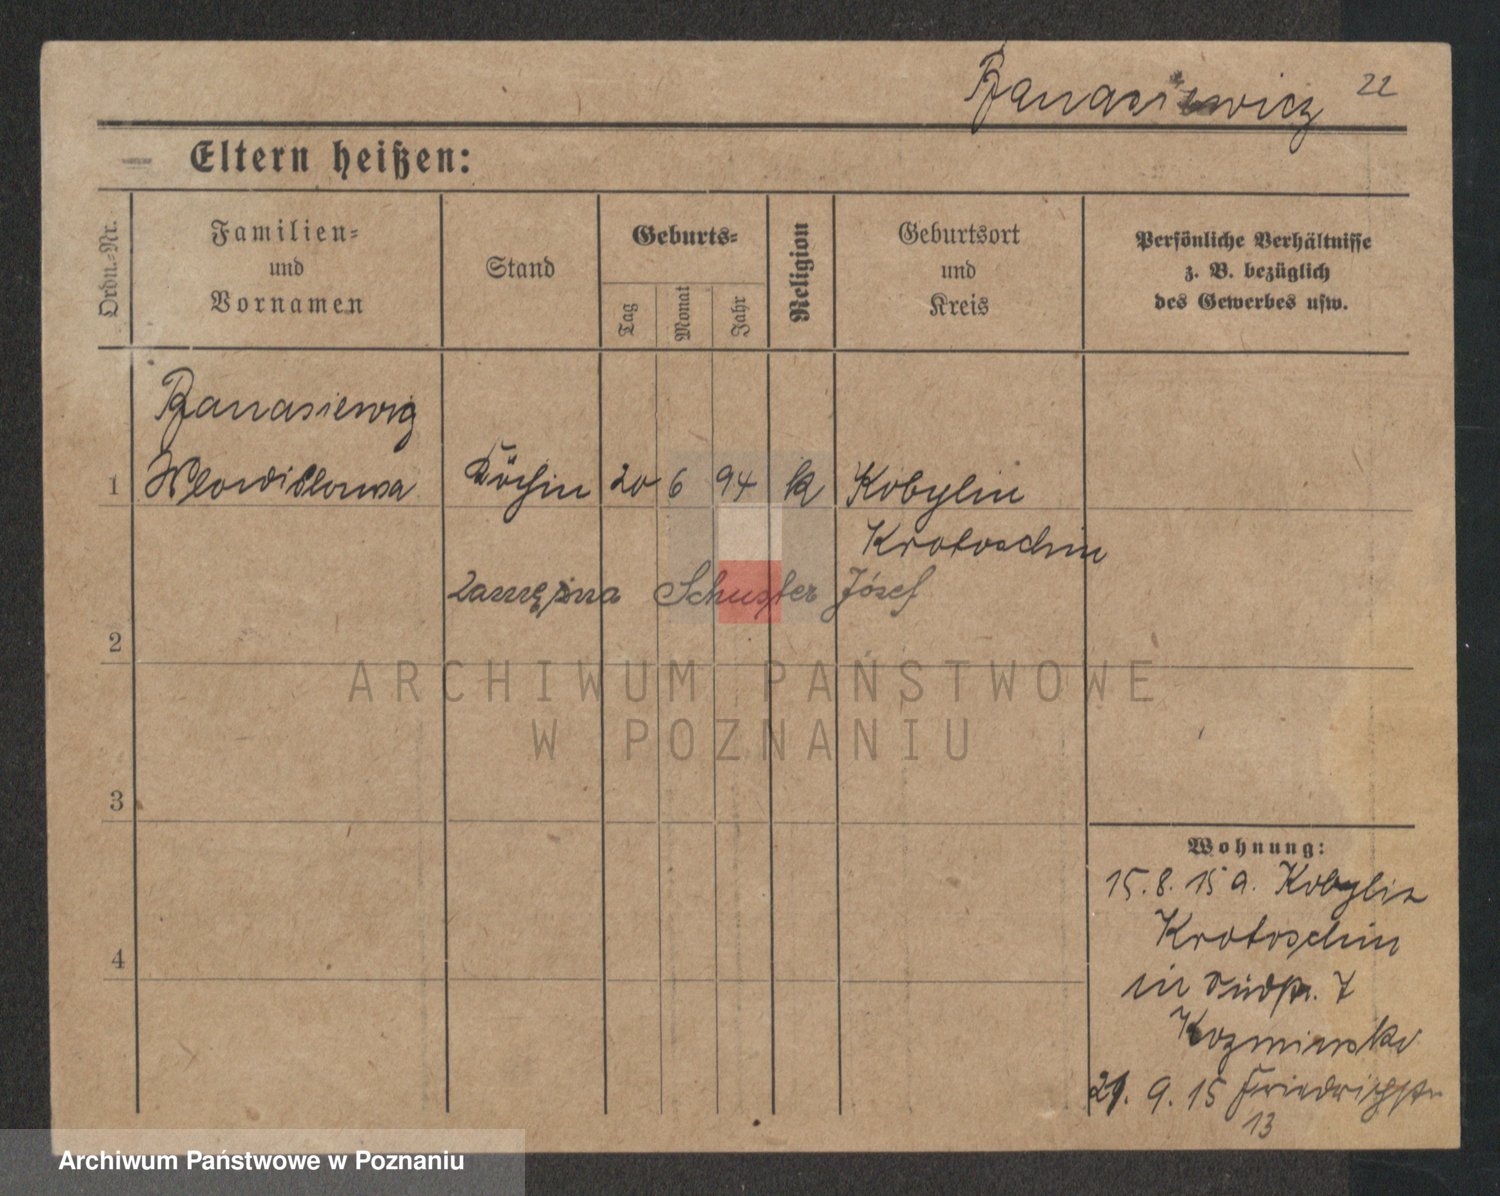 Banasiewicz 22
Eltern heißen:
Ordn.-Nr.
Familien-
und
Vornamen
Stand
Geburts-
Tag
Monat
Jahr
Religion
Geburtsort
und
Kreis
Persönliche Verhältnisse
z. B. bezüglich
des Gewerbes usw.
Banasiewicz
1 Wlowislowa Köchin 20 6 94 k Kobylin
Krotoschin
Zamężna Schuster Józef
2
ARCHIWUM PAŃSTWOWE
W POZNANIU
3
Wohnung:
15. 8. 15 a. Kobylin
Krotoschin
4
in Südstr. 7
Kozminski
21. 9. 15 Friedrichstr
13
Archiwum Państwowe w Poznaniu